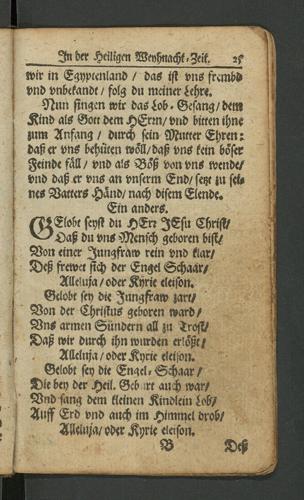 In der Heiligen Weyhnacht-Zeit. 25
wir in Egyptenland / das ist vns frembd
vnd vnbekandt / folg du meiner Lehre.
Nun singen wir das Lob-Gesang / dem
Kind als Gott dem HErrn / vnd bitten ihne
zum Anfang / durch sein Mutter Ehren:
daß er vns behüten wöll / daß vns kein böser
Feinde fäll / vnd als Böß von vns wende /
vnd daß er vns an vnserm End / setz zu sei-
nes Vatters Händ / nach disem Elende.
Ein anders.
GElobt seyst du HErr JEsu Christ /
Daß du vns Mensch geboren bist /
Von einer Jungfraw rein vnd klar /
Deß frewet sich der Engel Schaar /
Alleluja / oder Kyrie eleison.
Gelobt sey die Jungfraw zart /
Von der Christus geboren ward /
Vns armen Sündern all zu Trost /
Daß wir durch ihn wurden erlößt /
Alleluja / oder Kyrie eleison.
Gelobt sey die Engel-Schaar /
Die bey der Heil. Geburt auch war /
Vnd sang dem kleinen Kindlein Lob /
Auff Erd vnd auch im Himmel drob /
Alleluja / oder Kyrie eleison.
B Deß